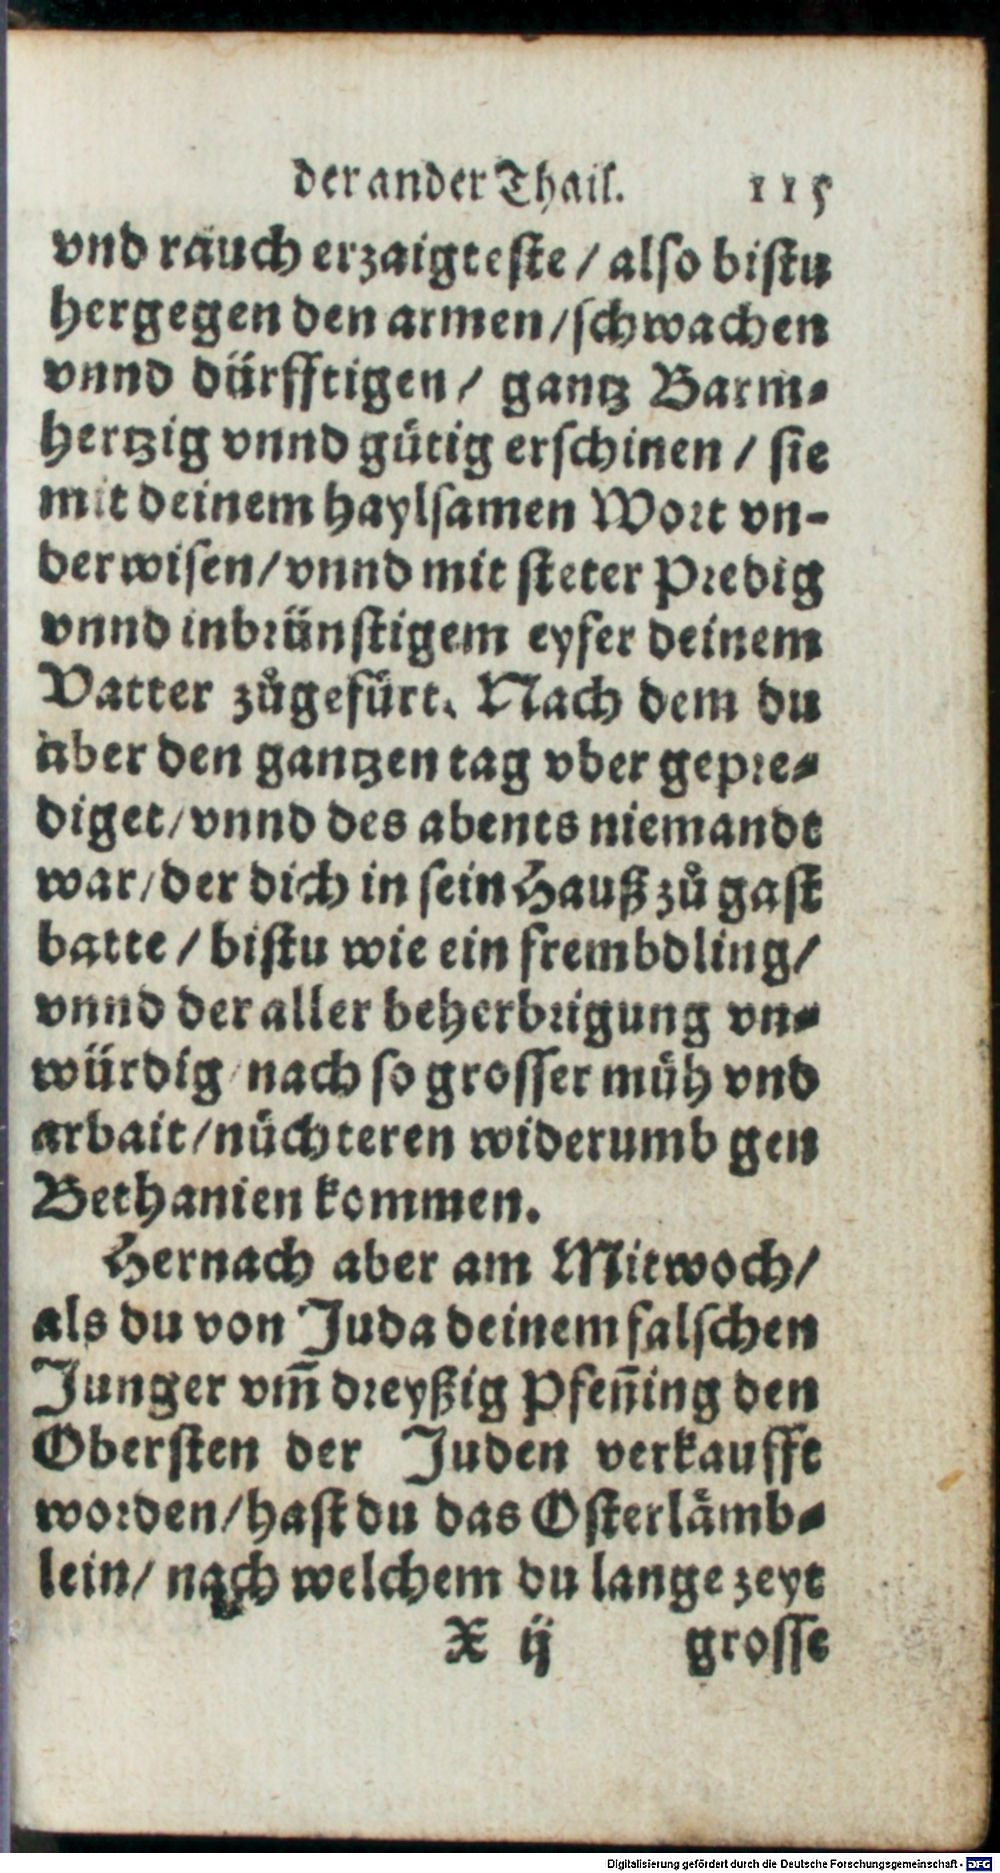 der ander Thail. 115
vnd räuch erzaigteste / also bistu
hergegen den armen / schwachen
vnnd dürfftigen / gantz Barm⸗
hertzig vnnd gütig erschinen / sie
mit deinem haylsamen Wort vn-
derwisen / vnnd mit steter Predig
vnnd inbrünstigem eyfer deinem
Vatter zůgefürt. Nach dem du
aber den gantzen tag vber gepre⸗
diget / vnnd des abents niemandt
war / der dich in sein Hauß zů gast
batte / bistu wie ein frembdling /
vnnd der aller beherbrigung vn⸗
würdig / nach so grosser müh vnd
arbait / nüchteren widerumb gen
Bethanien kommen.
Hernach aber am Mitwoch /
als du von Juda deinem falschen
Junger vm̃ dreyßig Pfeñing den
Obersten der Juden verkaufft
worden / hast du das Osterlämb⸗
lein / nach welchem du lange zeyt
X ij grosse
Digitalisierung gefördert durch die Deutsche Forschungsgemeinschaft - DFG